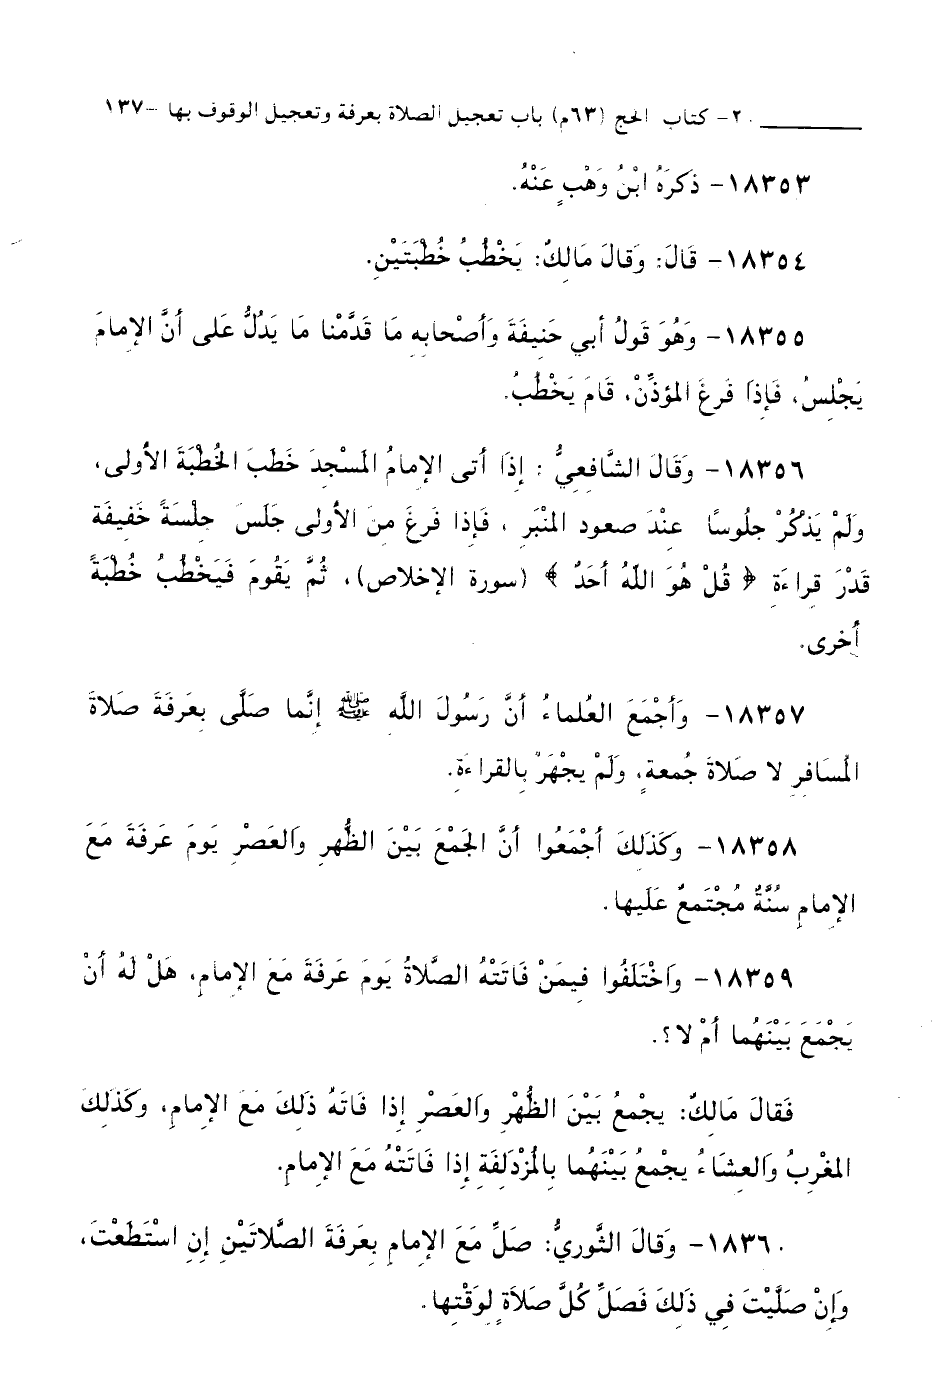 ٢٠- كتاب الحج (٦٣م) باب تعجيل الصلاة بعرفة وتعجيل الوقوف بها -١٣٧
١٨٣٥٣- ذكَرَهُ ابْنُ وَهْبٍ عَنْهُ.
١٨٣٥٤- قَالَ: وَقَالَ مَالكٌ: يَخْطُبُ خُطْبَتَيْنِ.
١٨٣٥٥- وَهُوَ قَولُ أبي حَنيفَةَ وَأصْحابِه مَا قَدَّمْنا مَا يَدُلُّ عَلى أنَّ الإمامَ
يَجْلِسُ، فَإِذا فَرغَ المؤذِّنْ، قَامَ يَخْطُبُ.
١٨٣٥٦- وَقَالَ الشَّافعِيُّ : إذَا أتى الإمَامُ المَسْجِدَ خَطَبَ الخُطْبَةَ الأولى،
وَلَمْ يَذْكُرْ جلُوسًا عنْدَ صعود المنْبَرِ ، فَإذا فَرغَ منَ الأولى جَلَسَ جِلْسَةً خَفيفَة
قَدْرَ قِراءَةِ ﴿ قُلْ هُوَ اللَّهُ أحَدٌ ﴾ (سورة الإخلاص)، ثُمَّ يَقُومَ فَيَخْطُبُ خُطْبَةً
أخرى.
١٨٣٥٧- وَأجْمَعَ العُلماءُ أنَّ رَسُولَ اللَّه ﷺ إنَّما صَلَّى بِعَرفَةَ صَلاةَ
المُسَافرِ لا صَلاةَ جُمعةٍ، وَلَمْ يجْهَرْ بِالقراءَةِ.
١٨٣٥٨- وكَذَلكَ أجْمَعُوا أنَّ الجَمْعَ بَيْنَ الظُّهرِ والعَصْرِ يَومَ عَرفَةَ مَعَ
الإمامِ سُنَّةٌ مُجْتَمعٌ عَلَيها.
١٨٣٥٩- واخْتَلَفُوا فيمَنْ فَاتَتْهُ الصَّلاةُ يَومَ عَرفَةَ مَعَ الإمامِ، هَلْ لَهُ أنْ
يَجْمَعَ بَيْنَهُما أمْ لا؟.
فَقالَ مَالكٌ: يجْمعُ بَيْنَ الظُّهْرِ والعَصْرِ إذا فَاتَهُ ذَلكَ مَعَ الإمامِ، وكَذَلكَ
المغْرِبُ والعِشَاءُ يجْمعُ بَيْنَهُما بِالمُزْدَلفَةِ إذَا فَاتَتْهُ مَعَ الإمامِ.
١٨٣٦٠- وَقَالَ الثَّوريُّ: صَلِّ مَعَ الإمامِ بِعَرفَةَ الصَّلاتَيْنِ إنِ اسْتَطَعْتَ،
وَإنْ صَلَّيْتَ فِي ذَلكَ فَصَلِّ كُلَّ صَلاَةٍ لِوَقْتِها.